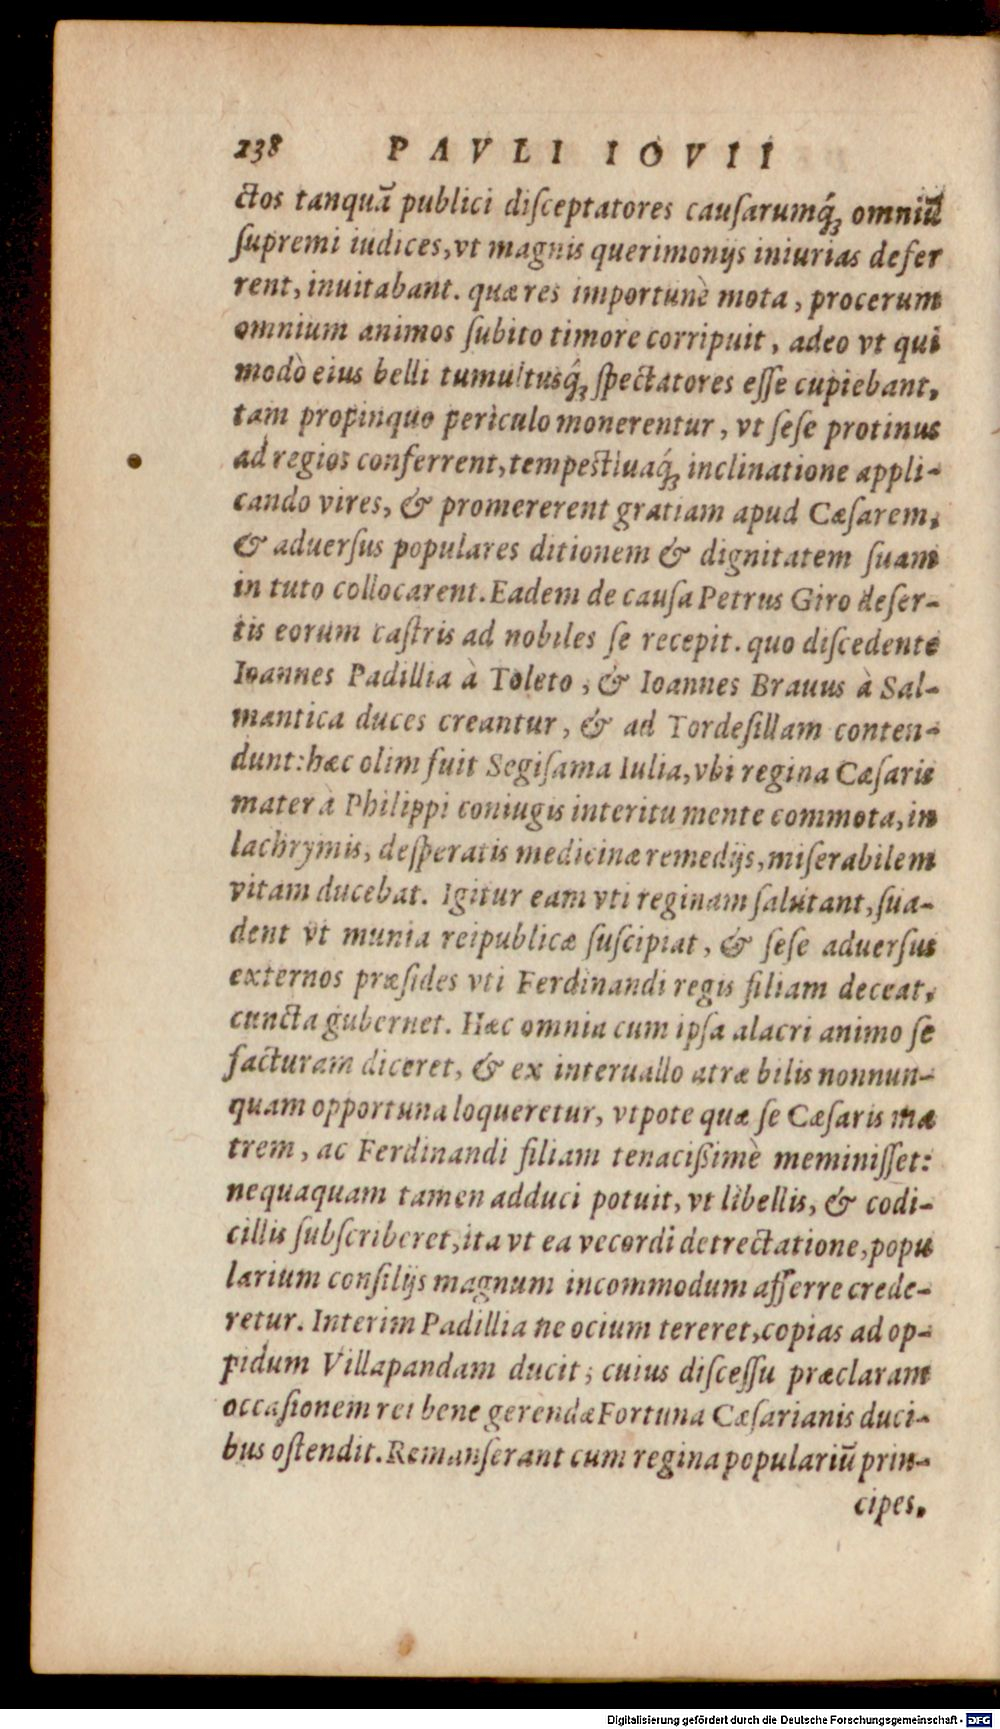 238 PAVLI IOVII
ctos tanquã publici diſceptatores cauſarumq́; omniũ
ſupremi iudices, vt magnis querimonijs iniurias defer
rent, inuitabant. quæ res importunè mota, procerum
omnium animos ſubito timore corripuit, adeo vt qui
modò eius belli tumultusq́; ſpectatores eſſe cupiebant,
tam propinquo periculo monerentur, vt ſeſe protinus
ad regios conferrent, tempestiuaq́; inclinatione appli-
cando vires, & promererent gratiam apud Cæſarem,
& aduerſus populares ditionem & dignitatem ſuam
in tuto collocarent. Eadem de cauſa Petrus Giro deſer-
tis eorum caſtris ad nobiles ſe recepit. quo diſcedente
Ioannes Padillia à Toleto, & Ioannes Brauus à Sal-
mantica duces creantur, & ad Tordeſillam conten-
dunt: hæc olim fuit Segiſama Iulia, vbi regina Cæſaris
mater à Philippi coniugis interitu mente commota, in
lachrymis, deſperatis medicinæ remedijs, miſerabilem
vitam ducebat. Igitur eam vti reginam ſalutant, ſua-
dent vt munia reipublicæ ſuſcipiat, & ſeſe aduerſus
externos præſides vti Ferdinandi regis filiam deceat,
cuncta gubernet. Hæc omnia cum ipſa alacri animo ſe
facturam diceret, & ex interuallo atræ bilis nonnun-
quam opportuna loqueretur, vtpote quæ ſe Cæſaris ma
trem, ac Ferdinandi filiam tenacißimè meminiſſet:
nequaquam tamen adduci potuit, vt libellis, & codi-
cillis ſubſcriberet, ita vt ea vecordi detrectatione, popu
larium conſilijs magnum incommodum afferre crede-
retur. Interim Padillia ne ocium tereret, copias ad op-
pidum Villapandam ducit; cuius diſceſſu præclaram
occaſionem rei bene gerendæ Fortuna Cæſarianis duci-
bus oſtendit. Remanſerant cum regina populariũ prin-
cipes.
Digitalisierung gefördert durch die Deutsche Forschungsgemeinschaft - DFG